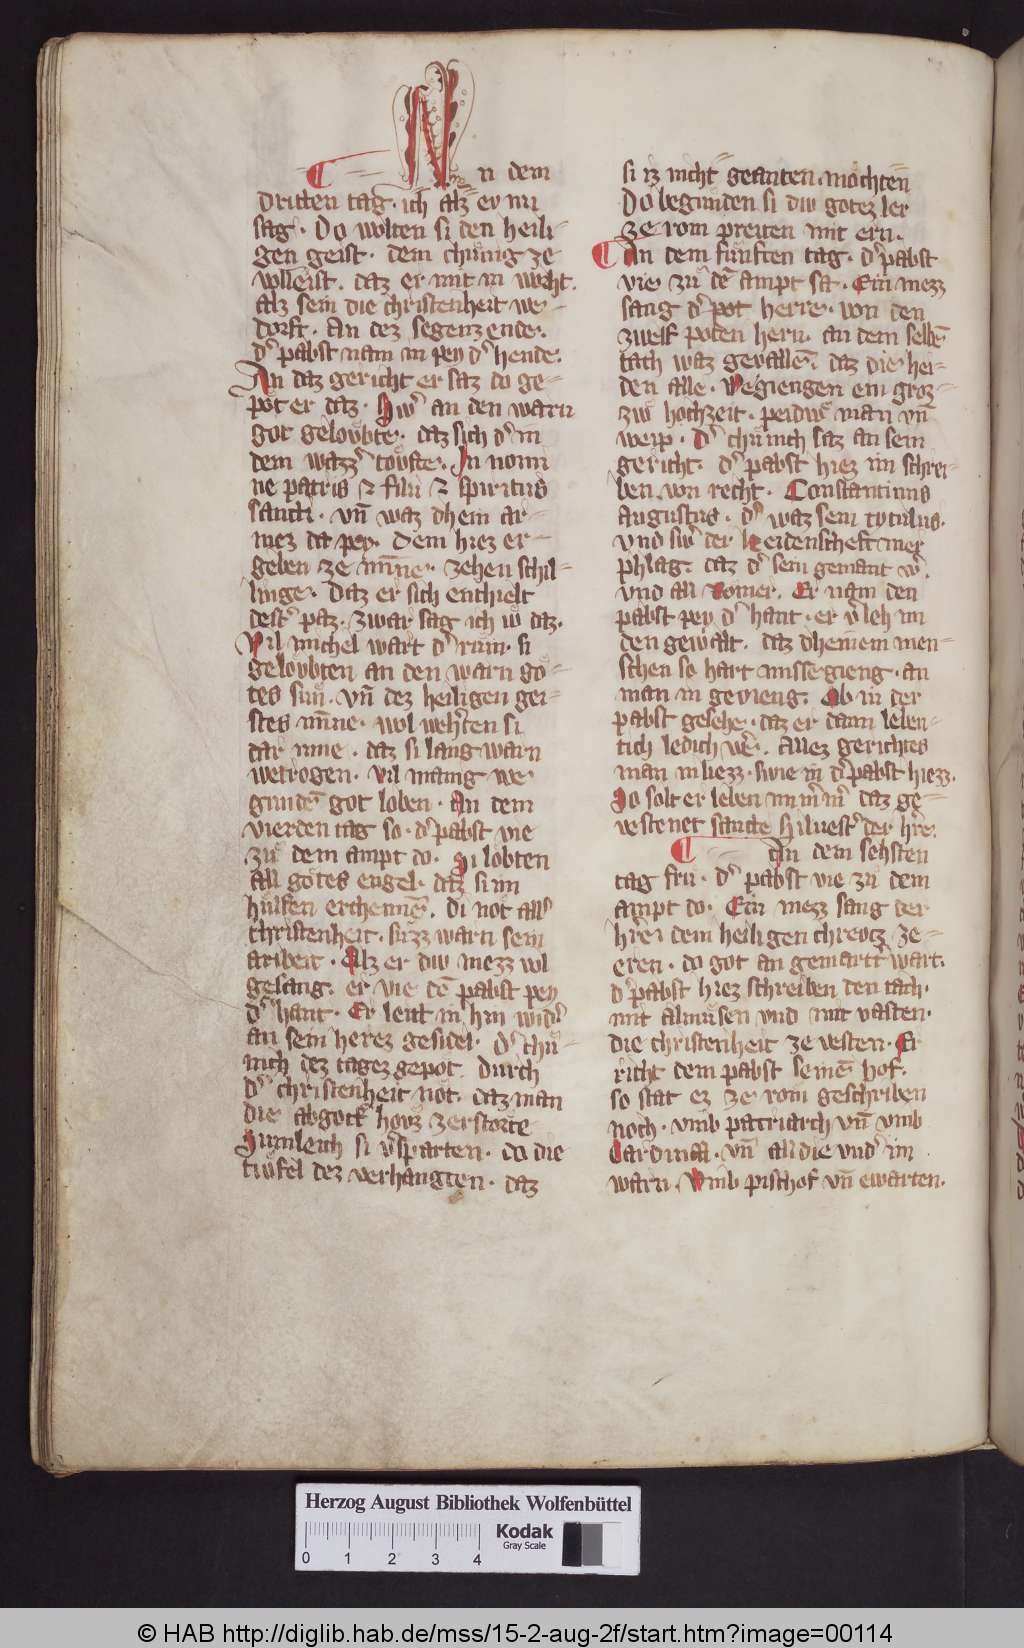 An dem
dritten tag · ich alz er nu
sag · Do wolten si den heili-
gen geist · dem chuͤnig ze
volleist · daz er mit in wocht ·
alz sein die christenheit we-
dorft · An dez segenz ende ·
d' pabst nam in pey d' hende ·
An daz gericht er saz do ge-
pot er daz · Sw' an den warn
got geloubte · daz sich d' in
dem wazz' toufte · In nomi
ne patris ⁊ filii ⁊ spiritus
sancti · vn̄ waz dhein ar-
mez da pey · Dem hiez er
geben ze mīne · zehen schil-
linge · Daz er sich enthielt
dest' paz · zwar sag ich iu daz ·
Vil michel wart d' rům · si
geloubten an den warn go-
tes sun · vn̄ dez heiligen gei-
stes mīne · wol westen si
dar inne · daz si lang warn
wetrogen · vil manig we
gundē got loben · An dem
vierden tag so · d' pabst vie
zů dem ampt do · Si lobten
all gotes engel · daz si im
hulfen erchennē · di not all'
christenheit · suͤzz warn sein
aribeit · Alz er diu mezz vol
gesang · er vie dē pabst pey
d' hant · Er leut in hin wid'
an sein herez gesidel · D' chuͤ-
nich dez tagez gepot · durch
d' christenheit not · daz man
die abgott houz zerstorte
Sumleich si v'sparten · do die
tiufel dez verhangten · daz
si iz nicht geanten mochten
Do begunden si diu gotez ler
ze rom preiten mit ern ·
An dem fuͤnften tag · d' pabst
vie zů dē ampt sa · Ein mezz
sang d' pot herre · von den
zwelf poten hern · an dem selbē
tach waz gevallē · daz die hei-
den alle · Wegiengen ein groz-
zw hochzeit · peiduͤ man vn̄
weip · D' chuͤnich saz an sein
gericht · d' pabst hiez im schrei-
ben von recht · Constantinus
augustus · d' waz sein tytulus ·
vnd sw' der heidenscheft mer
phlag · daz d' sein gemant w' ·
vnd all Romer · Er nam den
pabst pey d' hant · er v'leh im
den gewalt · daz dheinem men-
schen so hart missegieng · an
man in gevieng · Ob in der
pabst gesehe · daz er dann leben-
tich ledich w' · Allez gerichtes
man in liezz · swie in d' pabst hiezz ·
So solt er leben im'm' daz ge-
vestenet sancte Siluest' der h're ·
An dem sehsten
tag fru · d' pabst vie zů dem
ampt do · Ein mezz sang der
h're dem heiligen chreutz ze-
eren · do got an gemart't wart ·
d' pabst hiez schreiben den tach ·
mit almůsen vnd mit vasten ·
die christenheit ze vesten · Er
richt dem pabst seinē hof ·
so stat ez ze rom geschriben
noch · vmb patriarch vn̄ vmb
Cardinal · vn̄ all die vnd' im
warn · Vmb pischof vn̄ ewarten ·
Herzog August Bibliothek Wolfenbüttel
Kodak
Gray Scale
0 1 2 3 4
© HAB http://diglib.hab.de/mss/15-2-aug-2f/start.htm?image=00114